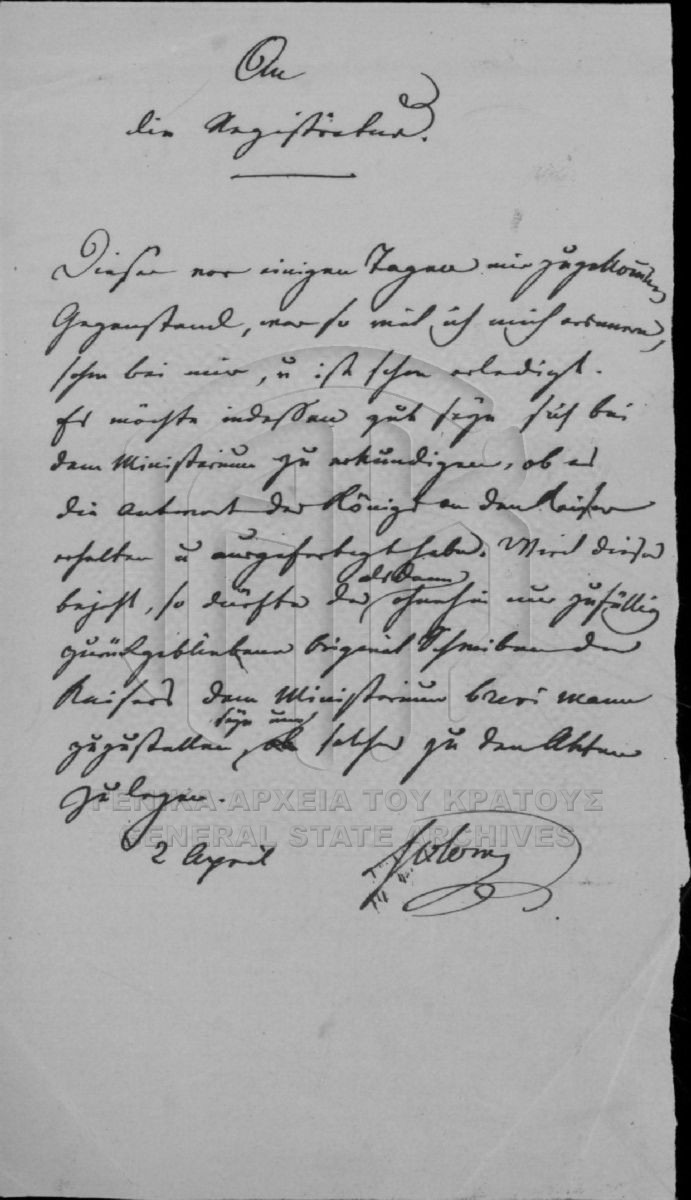 An
die Registratur.
Dieser vor einigen Tagen mir zugekommene
Gegenstand, war so viel ich mich erinnere,
schon bei mir, u ist schon erledigt.
Es möchte indessen gut seyn sich bei
dem Ministerium zu erkundigen, ob es
die Antwort des Königs an den Kaiser
erhalten u ausgefertigt habe. Wird dieses
bejaht, so dürfte das alsdann ohnehin nur zufällig
zurückgebliebene Original Schreiben des
Kaisers dem Ministerium brevi manu
zuzustellen seyn um solches zu den Akten
zu legen.
ΓΕΝΙΚΑ ΑΡΧΕΙΑ ΤΟΥ ΚΡΑΤΟΥΣ
GENERAL STATE ARCHIVES
2 April